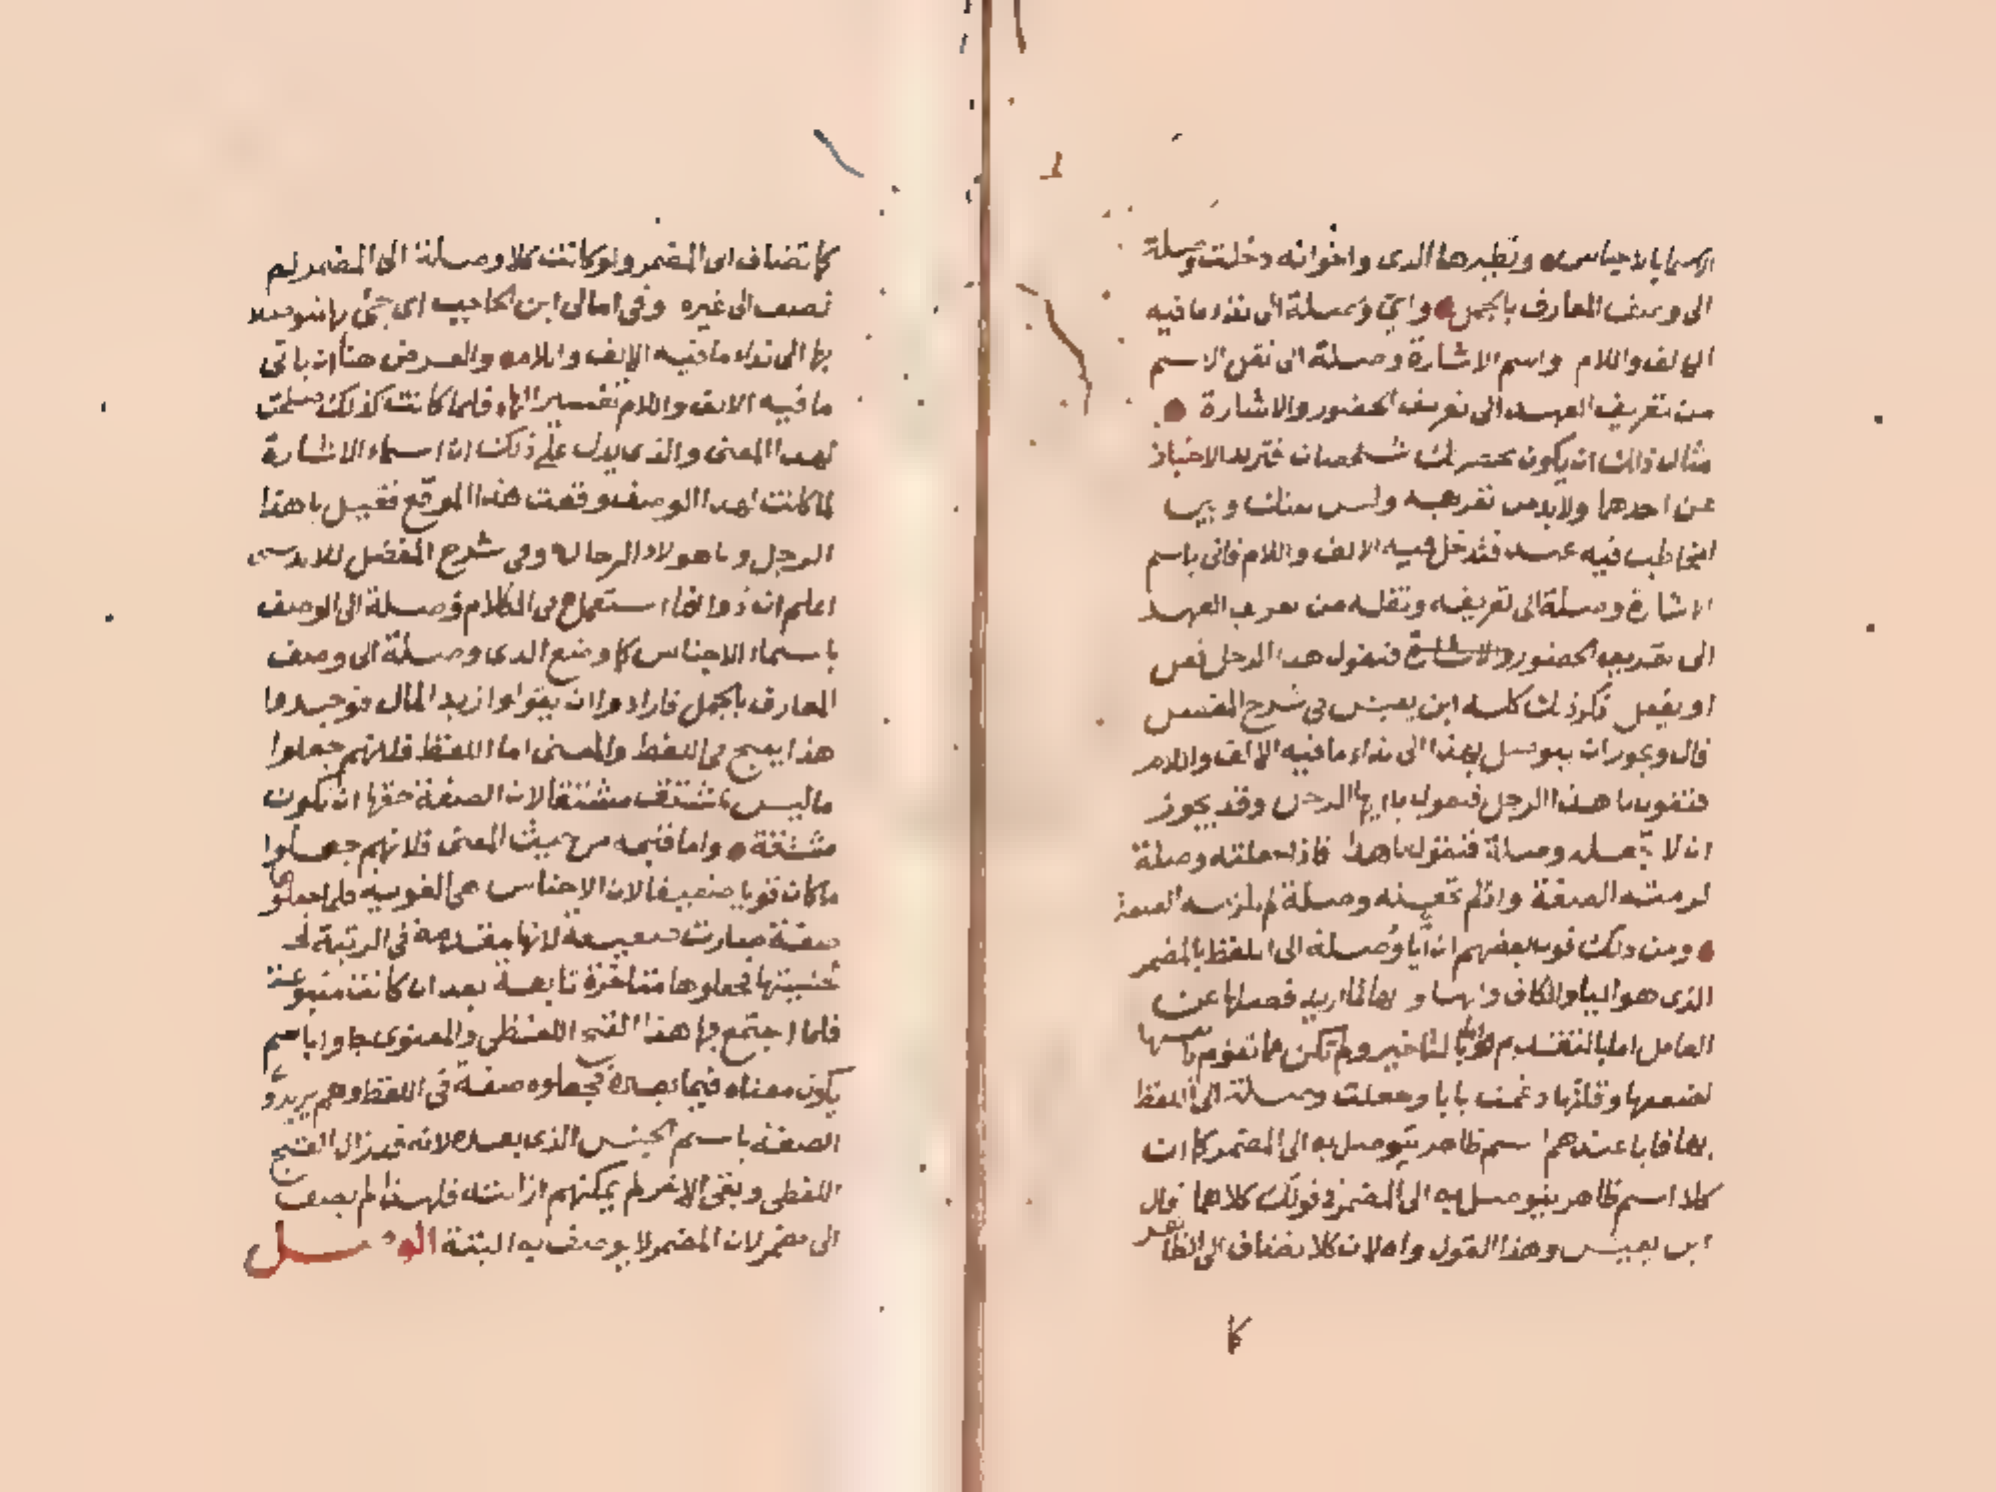 الاسما بالاجناس ونظيرها الذى واخواته دخلت وصلة
الى وصف المعارف بالجمل واى وصلة الى نداء ما فيه
الالف واللام واسم الاشارة وصلة الى نقل الاسم
من تعريف العهد الى تعريف الحضور والاشارة
مثال ذلك ان يكون بحضرتك شخصان فتريد الاخبار
عن احدهما ولابد من تعريفه وليس بينك وبين
المخاطب فيه عهد فتدخل فيه الالف واللام فاتى باسم
الاشارة وصلة الى تعريفه ونقله من تعريف العهد
الى تعريف الحضور والاشارة فتقول هذا الرجل فعل
او يفعل ذكر ذلك كله ابن يعيش فى شرح المفصل
قال ويجوز ان يتوصل بهذا الى نداء ما فيه الالف واللام
فتقول يا هذا الرجل فتقول يا ايها الرجل وقد يجوز
ان لا تجعله وصلة فتقول يا هذا فاذا جعلته وصلة
لزمته الصفة وان لم تجعله وصلة لم يلزمه الصفة
ومن ذلك قول بعضهم ان ايا وصلة الى اللفظ بالمضمر
الذى هو اليا والكاف والها و بها لما اريد فصلها عن
العامل اما بالتقديم او بالتاخير ولم تكن مما تقوم بانفسها
لضعفها وقلتها دعمت بايا وجعلت وصلة الى اللفظ
بها فايا عندهم اسم ظاهر يتوصل به الى المضمر كما ان
كلا اسم ظاهر يتوصل به الى المضمر فى قولك كلاهما قال
ابن يعيش وهذا القول واه لان كلا تضاف الى الظاهر
كما
كما تضاف الى المضمر ولو كانت كلا وصلة الى المضمر لم
تضف الى غيره وفى امالى ابن الحاجب اى جئ بها متوصلا
بها الى نداء ما فيه الالف واللام والغرض هنا ان ياتى
ما فيه الالف واللام تفسير الها فلما كانت كذلك صلحت
لهذا المعنى والذى يدل على ذلك ان اسماء الاشارة
لما كانت لهذا الوصف وقعت هذا الموقع فقيل يا هذا
الرجل و يا هولاء الرجال وفى شرح المفصل للاندلسى
اعلم ان ذو انما استعمل فى الكلام وصلة الى الوصف
باسماء الاجناس كما وضع الذى وصلة الى وصف
المعارف بالجمل فارادوا ان يقولوا زيد المال فوجدوا
هذا يقبح فى اللفظ والمعنى اما اللفظ فلانهم جعلوا
ما ليس بمشتق مشتقا لان الصفة حقها ان تكون
مشتقة واما قبحه من حيث المعنى فلانهم جعلوا
ما كان قويا ضعيفا لان الاجناس هى القوية فلما جعلوها
صفة صارت ضعيفة لانها متقدمة فى الرتبة
جنسيتها فجعلوها متاخرة تابعة بعد ان كانت متبوعة
فلما اجتمع بها هذا القبح اللفظى والمعنوى جاوا باسم
يكون معناه فيما بعده فجعلوه صفة فى اللفظ وهم يريدون
الصفة باسم الجنس الذى بعده لانه قد زال القبح
اللفظى وبقى الاخر لم يمكنهم ازالته فلهذا لم يضف
الى مضمر لان المضمر لا يوصف به البتة الوصل